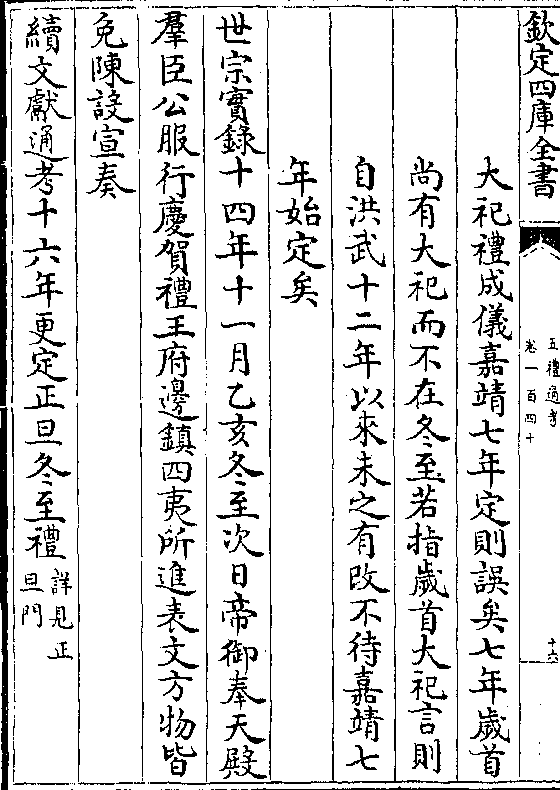 欽定四庫全書
五禮通考
卷一百四十
十六
大祀禮成儀嘉靖七年定則誤矣七年歲首
尚有大祀而不在冬至若指歲首大祀言則
自洪武十二年以來未之有改不待嘉靖七
年始定矣
世宗實錄十四年十一月乙亥冬至次日帝御奉天殿
羣臣公服行慶賀禮王府邊鎮四夷所進表文方物皆
免陳設宣奏
續文獻通考十六年更定正旦冬至禮詳見正旦門